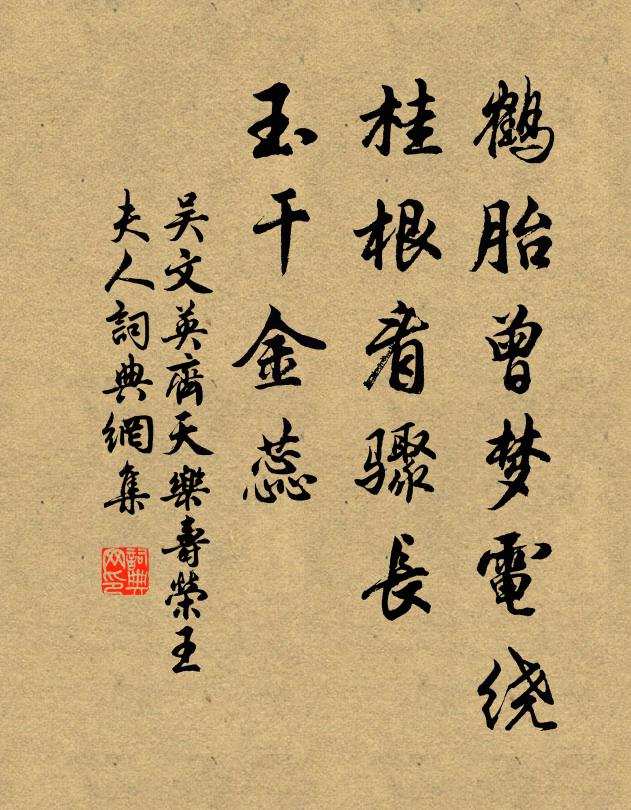 鹤胎曾梦電绕
桂根看骤長
玉干金蕊
吴文英齊天樂壽榮王
夫人詞典網集
詞典网印